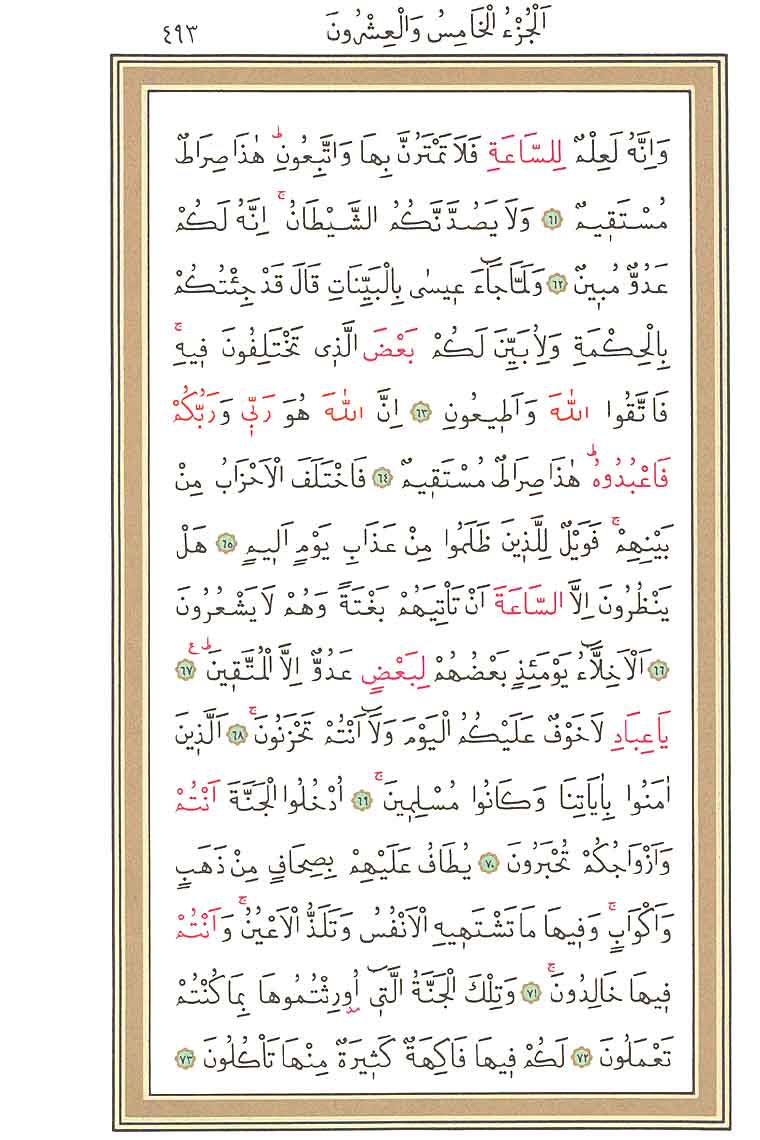 اَلْجُزْءُ الْخَامِسُ وَالْعِشْرُونَ ٤٩٣
وَاِنَّهُ لَعِلْمٌ لِلسَّاعَةِ فَلَا تَمْتَرُنَّ بِهَا وَاتَّبِعُونِۜ هٰذَا صِرَاطٌ
مُسْتَقٖيمٌ ٦١ وَلَا يَصُدَّنَّكُمُ الشَّيْطَانُۚ اِنَّهُ لَكُمْ
عَدُوٌّ مُبٖينٌ ٦٢ وَلَمَّا جَٓاءَ عٖيسٰى بِالْبَيِّنَاتِ قَالَ قَدْ جِئْتُكُمْ
بِالْحِكْمَةِ وَلِاُبَيِّنَ لَكُمْ بَعْضَ الَّذٖى تَخْتَلِفُونَ فٖيهِۚ
فَاتَّقُوا اللّٰهَ وَاَطٖيعُونِ ٦٣ اِنَّ اللّٰهَ هُوَ رَبّٖى وَرَبُّكُمْ
فَاعْبُدُوهُۜ هٰذَا صِرَاطٌ مُسْتَقٖيمٌ ٦٤ فَاخْتَلَفَ الْاَحْزَابُ مِنْ
بَيْنِهِمْۚ فَوَيْلٌ لِلَّذٖينَ ظَلَمُوا مِنْ عَذَابِ يَوْمٍ اَلٖيمٍ ٦٥ هَلْ
يَنْظُرُونَ اِلَّا السَّاعَةَ اَنْ تَاْتِيَهُمْ بَغْتَةً وَهُمْ لَا يَشْعُرُونَ
٦٦ اَلْاَخِلَّٓاءُ يَوْمَئِذٍ بَعْضُهُمْ لِبَعْضٍ عَدُوٌّ اِلَّا الْمُتَّقٖينَۜ ع ٦٧
يَا عِبَادِ لَا خَوْفٌ عَلَيْكُمُ الْيَوْمَ وَلَٓا اَنْتُمْ تَحْزَنُونَۚ ٦٨ اَلَّذٖينَ
اٰمَنُوا بِاٰيَاتِنَا وَكَانُوا مُسْلِمٖينَۚ ٦٩ اُدْخُلُوا الْجَنَّةَ اَنْتُمْ
وَاَزْوَاجُكُمْ تُحْبَرُونَ ٧٠ يُطَافُ عَلَيْهِمْ بِصِحَافٍ مِنْ ذَهَبٍ
وَاَكْوَابٍۚ وَفٖيهَا مَا تَشْتَهٖيهِ الْاَنْفُسُ وَتَلَذُّ الْاَعْيُنُۚ وَاَنْتُمْ
فٖيهَا خَالِدُونَۚ ٧١ وَتِلْكَ الْجَنَّةُ الَّتٖٓى اُو۫رِثْتُمُوهَا بِمَا كُنْتُمْ
تَعْمَلُونَ ٧٢ لَكُمْ فٖيهَا فَاكِهَةٌ كَثٖيرَةٌ مِنْهَا تَاْكُلُونَ ٧٣